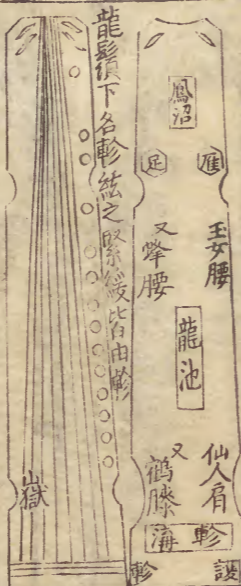 鳳沼
雁
足
玉女腰
又蜂腰
龍池
仙人肩
又鶴膝
軫海
護
軫
龍鬚下各軫絃之緊緩皆由軫
嶽